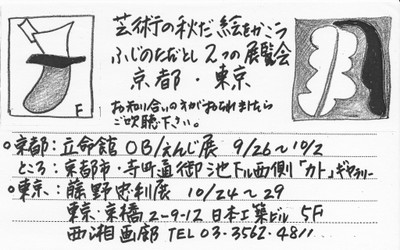 芸術の秋だ 絵をかこう
ふじのただとし 2つの展覧会
京都・東京
お知り合いの方がおられましたら
ご吹聴下さい。
F
○京都：立命館OB/えんじ展 9/26〜10/2
ところ：京都市・寺町通御池下ル西側「カト」ギャラリー
○東京：藤野忠利展 10/24〜29
東京・京橋2-9-12 日本工築ビル 5F
西湘画廊 TEL 03-3562-4811